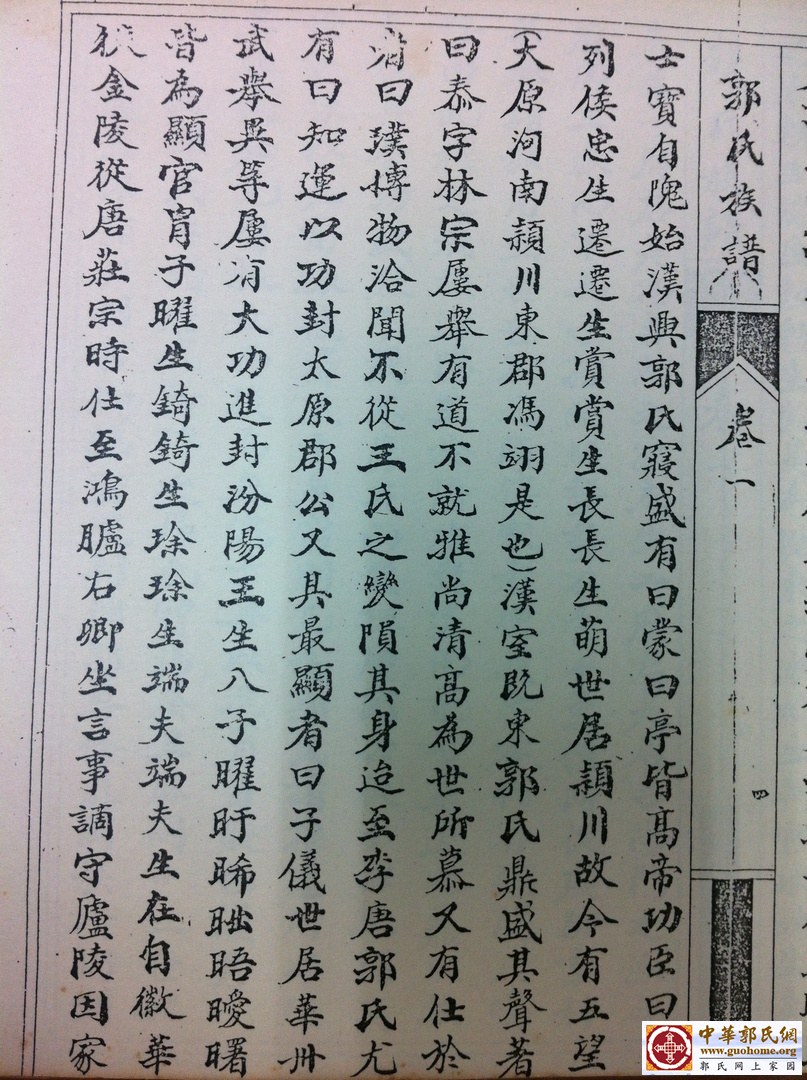 郭氏族譜
卷一
四
士寶自隗始漢興郭氏寢盛有曰蒙曰亭皆高帝功臣曰
列侯忠生遷遷生賞賞生長長生萌世居穎川故今有五望
(大原河南穎川東郡馮翊是也)漢室既東郭氏鼎盛其聲著
曰泰字林宗屢舉有道不就雅尚清高為世所慕又有仕於
曰璞博物洽聞不從王氏之變隕其身迨至李唐郭氏尤
有曰知運以功封太原郡公又其最顯者曰子儀世居華州
武舉異等屢有大功進封汾陽王生八子曜旰晞昢晤曖曙
皆為顯官胄子曜生錡錡生琮琮生端夫端夫生在自徽華
從金陵從唐莊宗時仕至鴻臚右卿坐言事謫守廬陵因家
中華郭氏網
www.guohome.org
郭氏網上家園